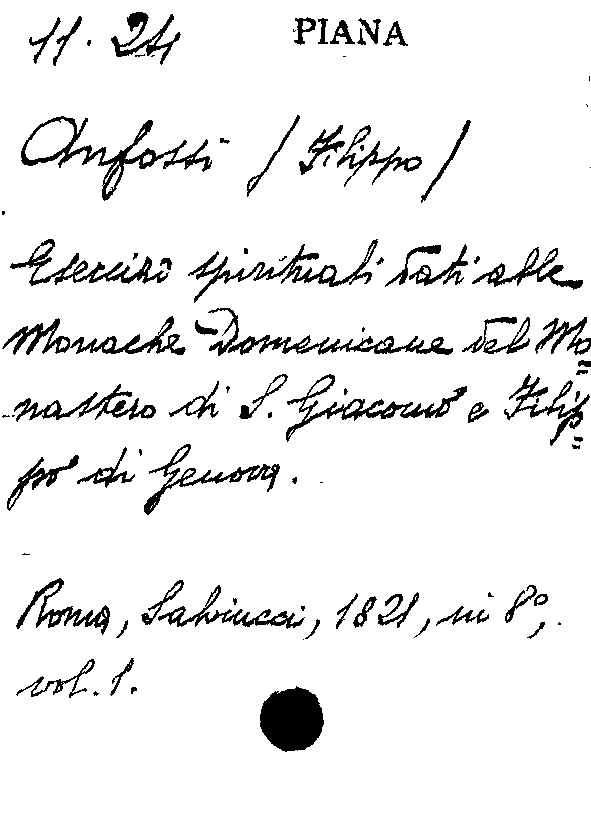 11. 24 PIANA
Anfossi / Filippo /
Esercizi spirituali dati alle
Monache Domenicane del Mo=
nastero di S. Giacomo e Filip=
po di Genova.
Roma, Salviucci, 1821, in 8°,
vol. 1.